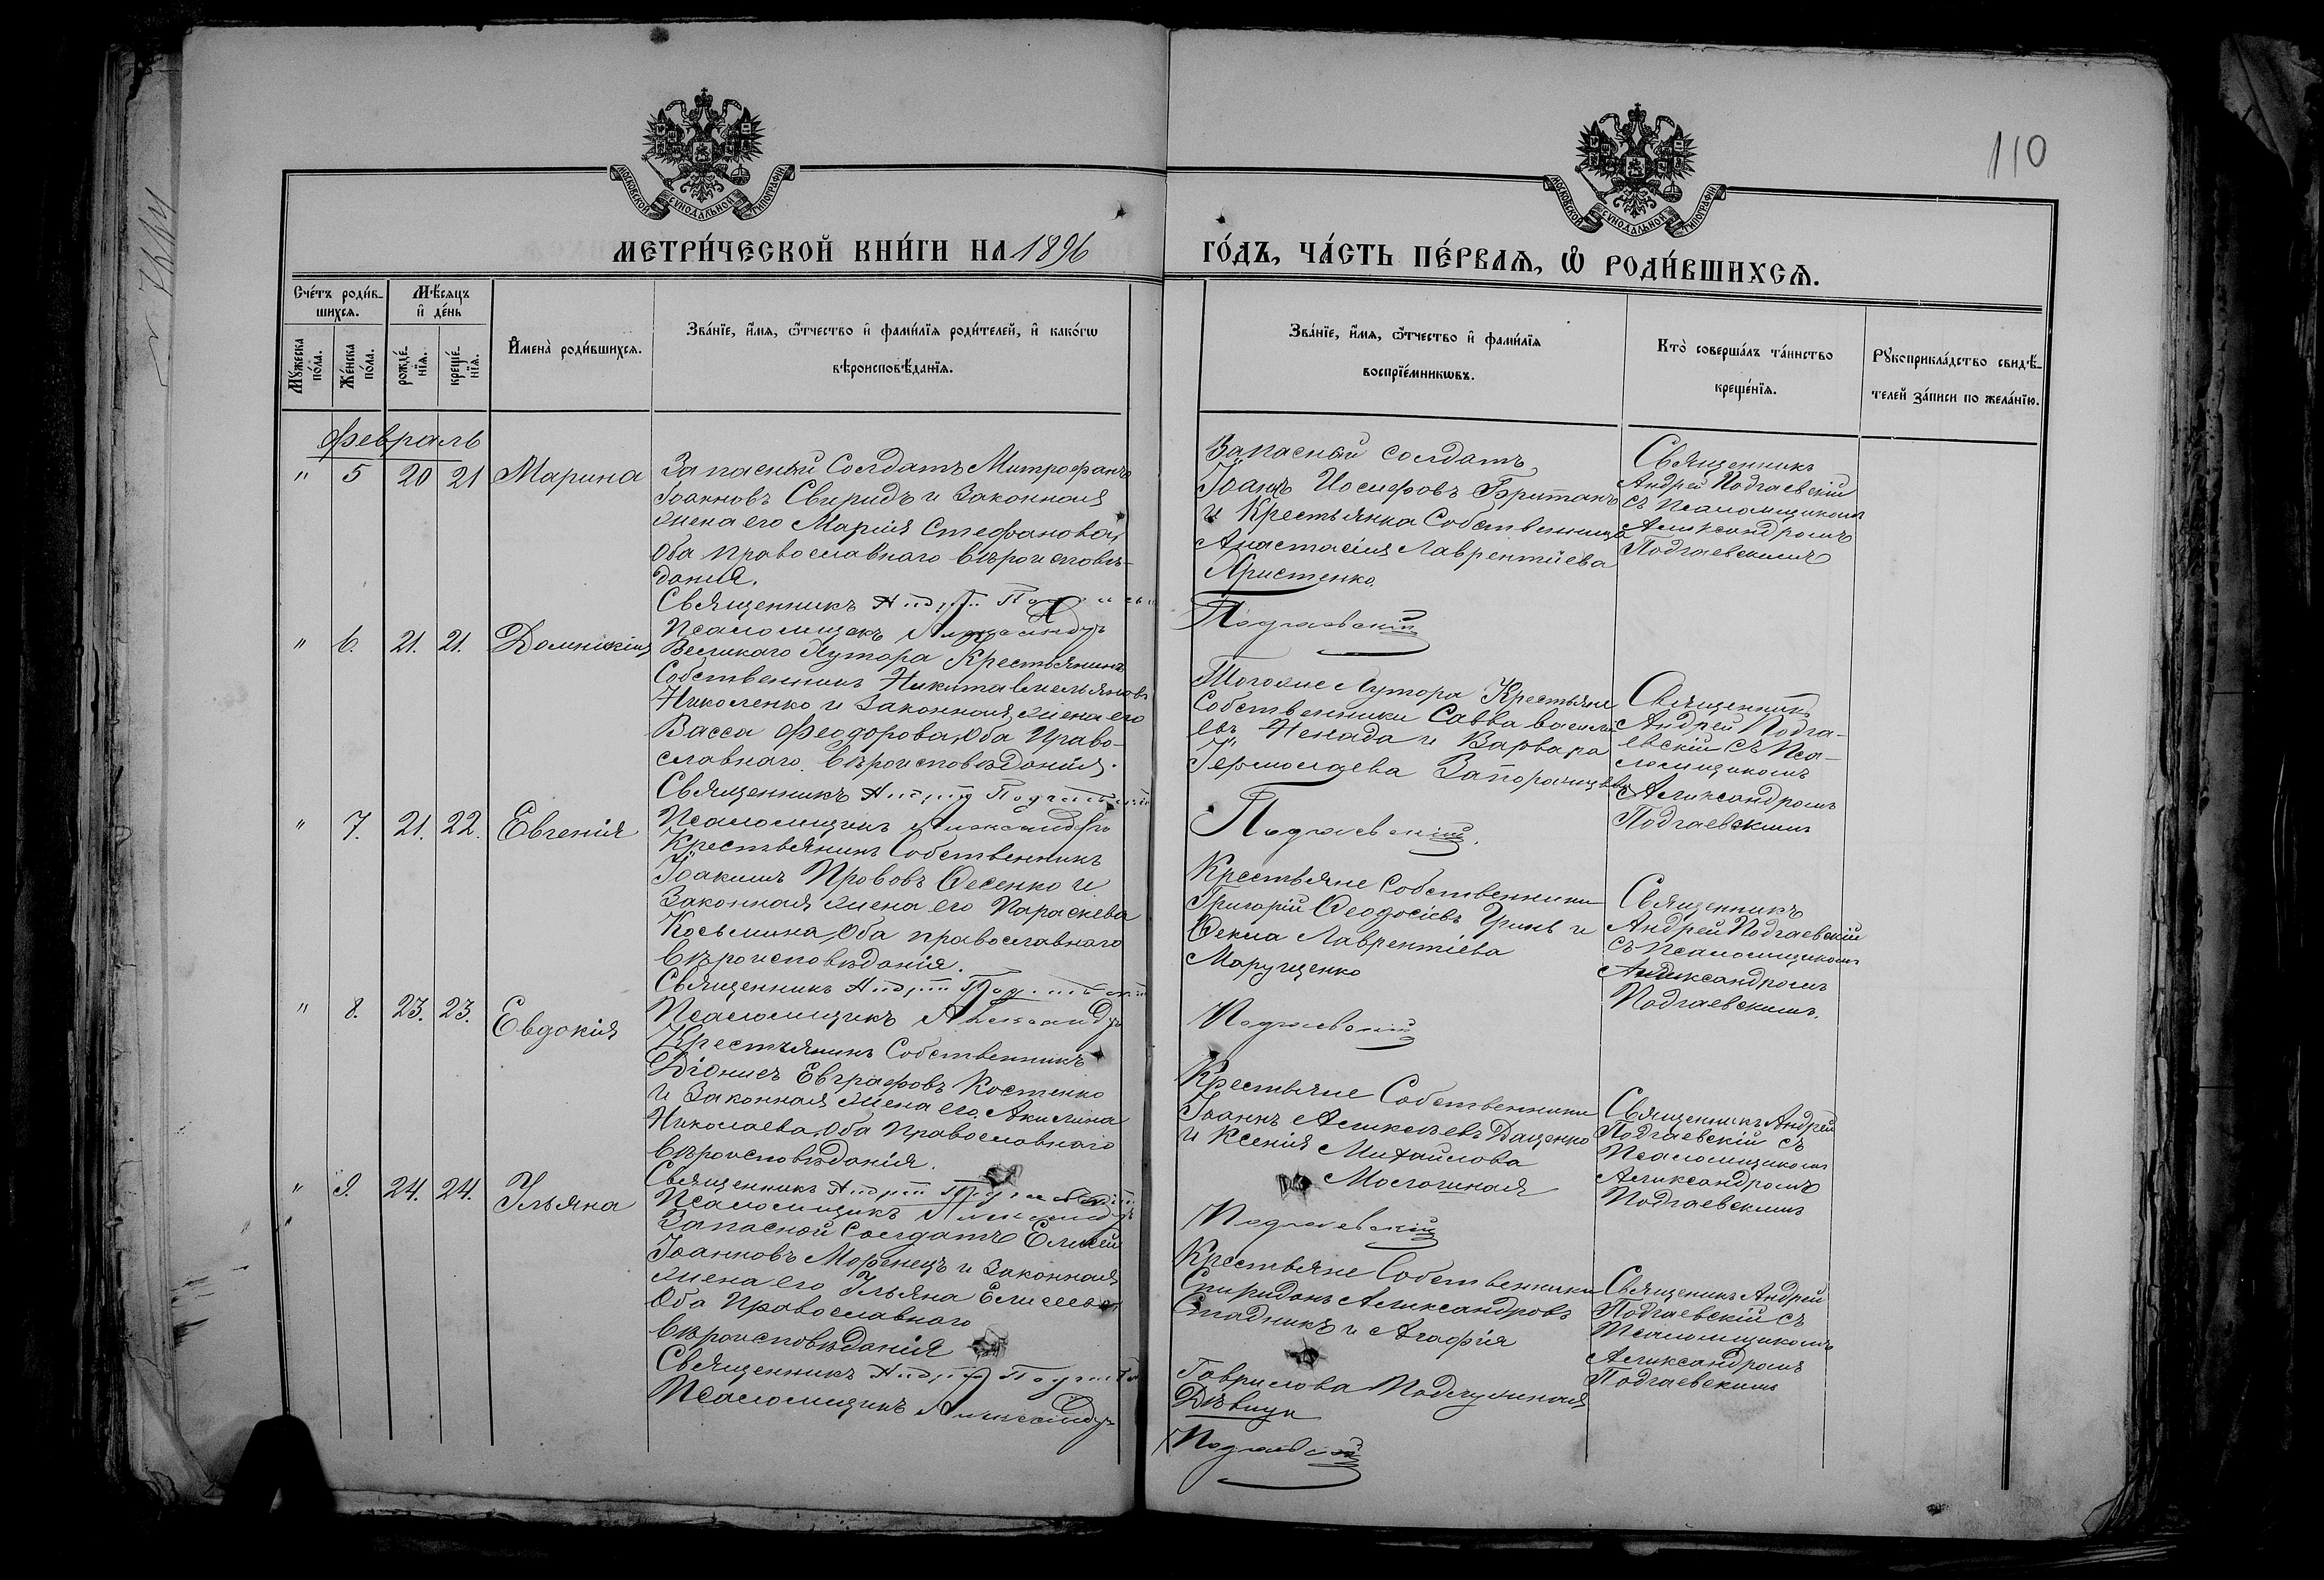 110
МОСКОВСКОЙ СѴНОДАЛЬНОЙ ТИПОГРАФІИ
МОСКОВСКОЙ СѴНОДАЛЬНОЙ ТИПОГРАФІИ
МЕТРИ́ЧЕСКОЙ КНИ́ГИ НА 1896
ГО́ДЪ, ЧА́СТЬ ПЕ́РВАѦ, Ѡ҆ РОДИ́ВШИХСѦ.
Сче́тъ роди́в-
шихсѧ.
Мꙋ́жеска
по́ла.
Же́нска
по́ла.
Мѣ́сѧцъ
и҆ де́нь
рожде́-
нїѧ.
креще́-
нїѧ.
И҆мена̀ роди́вшихсѧ.
Зва́нїе, и҆́мѧ, ѻ҆́тчество и҆ фами́лїѧ роди́телей, и҆ како́гѡ
вѣроисповѣ́данїѧ.
Зва́нїе, и҆́мѧ, ѻ҆́тчество и҆ фами́лїѧ
воспрїе́мникѡвъ.
Кто̀ соверша́лъ та́инство
креще́нїѧ.
Рꙋкоприкла́дство свидѣ́-
телей за́писи по жела́нїю.
Февраль
" 5 20 21 Марина
Запасный Солдатъ Митрофанъ
Іоанновъ Свиридъ и Законная
жена его Марія Стефанова,
Оба православнаго вѣроисповѣ-
данія.
Священникъ Андрей
Псаломщикъ Александръ
Запасный солдатъ
Іоаннъ Иосифовъ Британъ
и Крестьянка Собственница
Анастасія Лаврентіева
Христенко
Подгаевскій
Священникъ
Андрей Подгаевскій
съ Псаломщикомъ
Александромъ
Подгаевскимъ
" 6. 21. 21. Домникія
Великаго Хутора Крестьянинъ
Собственникъ Никита Емельяновъ
Николенко и Законная жена его
Васса Феодорова, Оба Право-
славнаго Вѣроисповѣданія.
Священникъ Андрей
Псаломщикъ Александръ
Тогоже Хутора Крестьяне
Собственники Савва Василі
евъ Ненада и Варвара
Ермолаева
Подгаевскій.
Священникъ
Андрей Подга-
евскій съ Пса-
ломщикомъ
Александромъ
Подгаевскимъ
" 7. 21. 22. Евгенія
Крестьянинъ Собственникъ
Іоакимъ Прововъ Ѳесенко и
Законная жена его Параскева
Косьмина, Оба православнаго
Вѣроисповѣданія.
Священникъ Андрей
Псаломщикъ Александръ
Крестьяне Собственники
Григорій Ѳеодосіевъ и
Ѳекла Лаврентіева
Марущенко
Подгаевскій
Священникъ
Андрей Подгаевскій
съ Псаломщикомъ
Александромъ
Подгаевскимъ.
" 8. 23. 23. Евдокія
Крестьянинъ Собственникъ
Діонисъ Евграфовъ Костенко
и Законная жена его Акилина
Николаева, Оба Православнаго
Вѣроисповѣданія.
Священникъ Андрей
Псаломщикъ Александръ
Крестьяне Собственники
Іоаннъ Алексѣевъ Даценко
и Ксенія Михайлова
Подгаевскій
Священникъ Андрей
Подгаевскій съ
Псаломщикомъ
Александромъ
Подгаевскимъ
" 9. 24. 24. Ульяна
Запасной Солдатъ Елисей
Іоанновъ Моренецъ и Законная
жена его Ульяна Елисеева
Оба Православнаго
Вѣроисповѣданія
Священникъ Андрей
Псаломщикъ Александръ
Крестьяне Собственники
Спиридонъ Александровъ
Стадникъ и Агафія
Гаврилова
Дѣвица
Подгаевскій
Священникъ Андрей
Подгаевскій съ
Псаломщикомъ
Александромъ
Подгаевскимъ